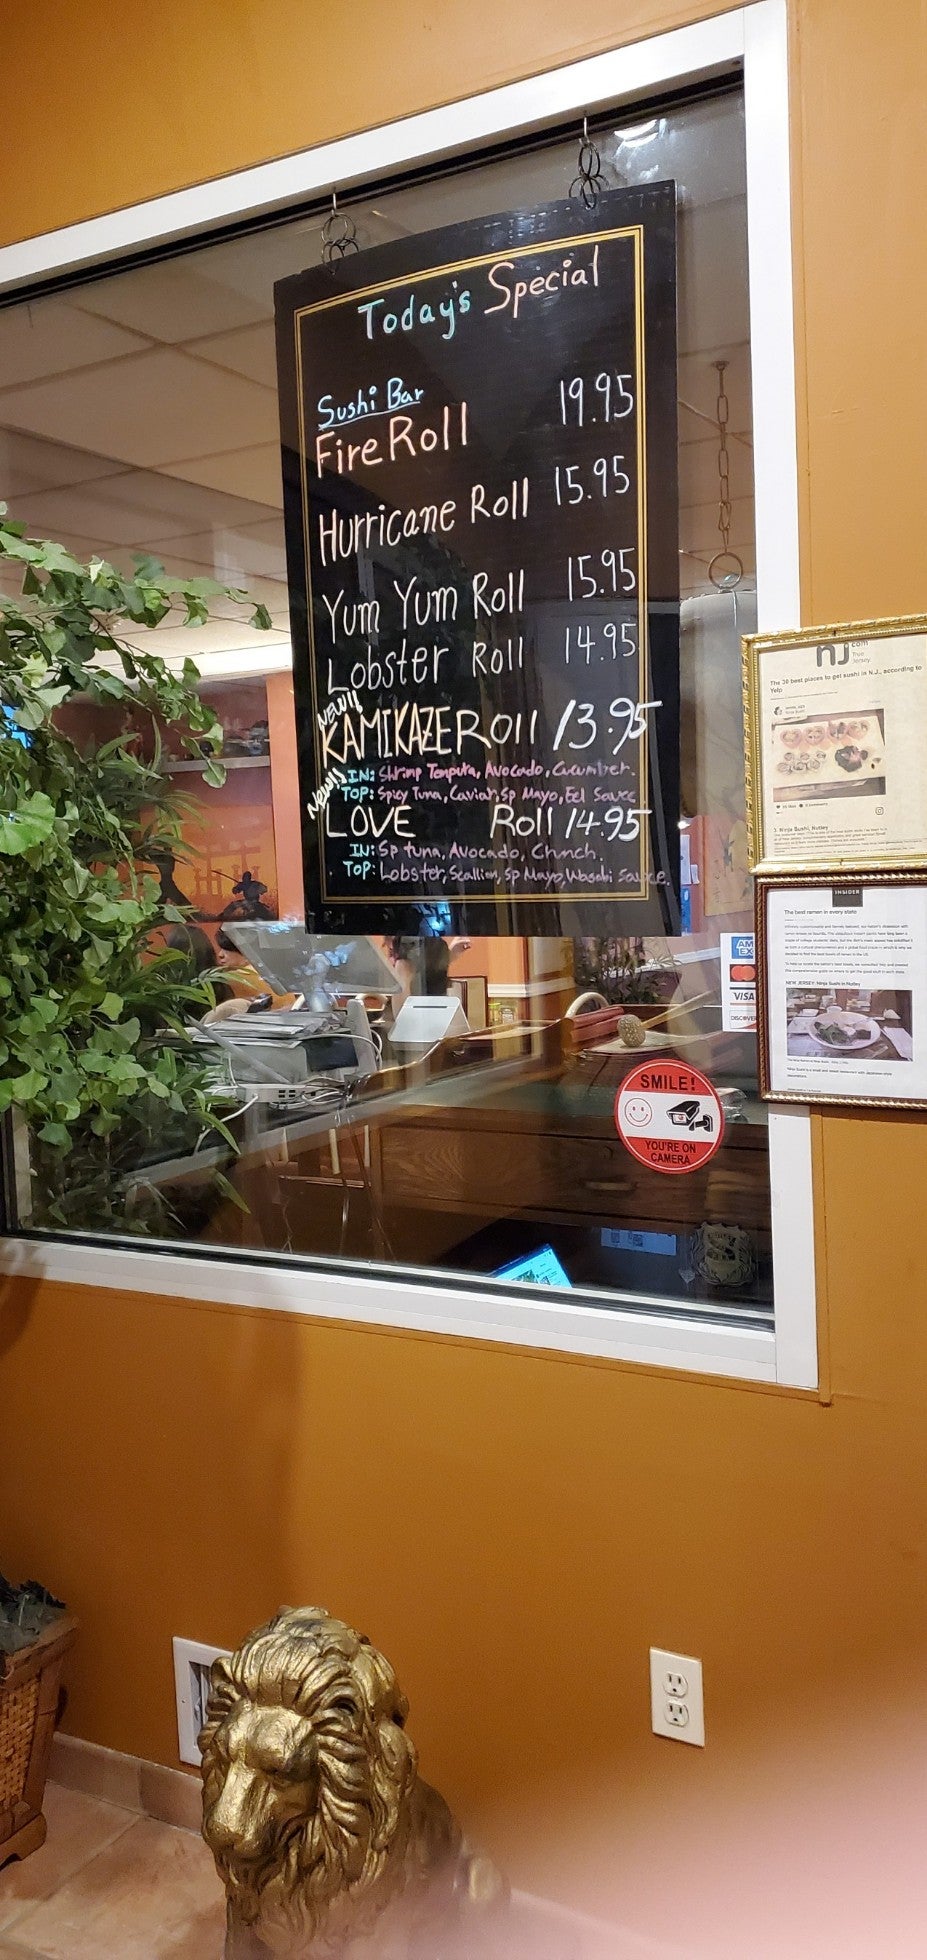 Today's Special
Sushi Bar
Fire Roll 19.95
Hurricane Roll 15.95
Yum Yum Roll 15.95
Lobster Roll 14.95
NEW!!
KAMIKAZE ROll 13.95
IN: Shrimp Tenpura, Avocado, Cucumber.
TOP: Spicy Tuna, Caviar, Sp Mayo, Eel Sauce
NEW!!
LOVE Roll 14.95
IN: Sp tuna, Avocado, Chrnch.
TOP: Lobster, Scallion, Sp Mayo, Wasabi Sauce.
nj.com
True
Jersey.
The 30 best places to get sushi in N.J., according to
Yelp
3. Ninja Sushi, Nutley
INSIDER
The best ramen in every state
NEW JERSEY: Ninja Sushi in Nutley
Ninja Sushi is a small and sweet restaurant with Japanese-style
AM
EX
VISA
DISCOVER
SMILE!
YOU'RE ON
CAMERA